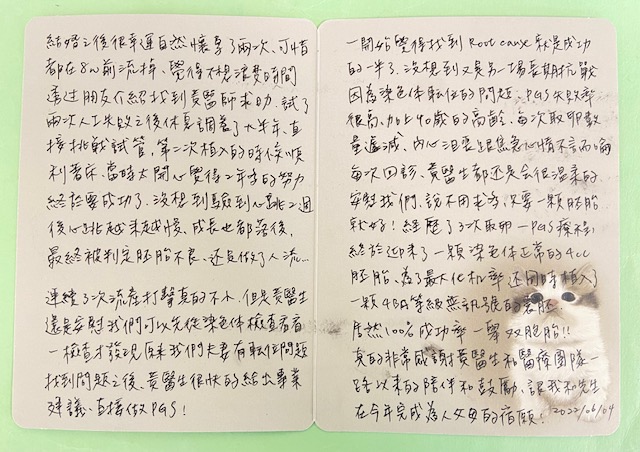 結婚之後很幸運自然懷孕了兩次、可惜
都在8w前流掉、覺得不想浪費時間
透過朋友介紹找到黃醫師求助、試了
兩次人工失敗之後休息調養了大半年、直
接挑戰試管、第二次植入的時侯順
利著床、當時太開心覺得2年多的努力
終於要成功了、沒想到驗到心跳2週
後心跳越來越慢、成長也都落後、
最終被判定胚胎不良、還是做了人流...
連續了次流產打擊真的不小、但是黃醫生
還是安慰我們可以先從染色體檢查看看
一檢查才發現原來我們夫妻有転位問題
找到問題之後、黃醫生很快的給出專業
建議、直接做PGS!
一開始覺得找到 Root cause 就是成功
的一半了、沒想到又是另一場長期抗戰
因為染色體転位的問題、PGS失敗率
很高、加上40歲的高齡、每次取卵數
量遞減、內心沮喪跟焦急心情不言而喻
每次回診、黃醫生都還是會很溫柔的
安慰我們、說不用求多、只要一顆胚胎
就好! 經歷了3次取卵-PGS療程、
終於迎來了一顆染色体正常的4cc
胚胎、為了最大化机率、還同時植入了
一顆4BB等級無訊號的囊胚
居然100%成功率一舉双胞胎!!
真的非常感謝黃醫生和醫療團隊一
路以來的陪伴和鼓勵、讓我和先生
在今年完成為人父母的宿願! 2022/06/04